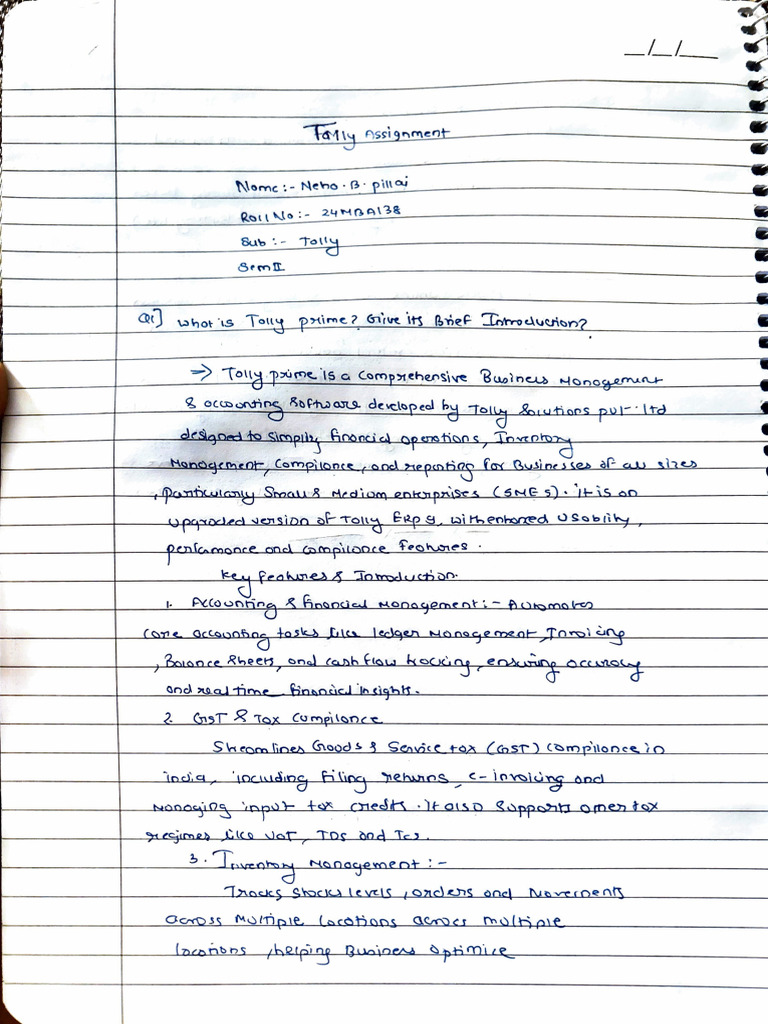 __/__/____
Tally Assignment
Name:- Neha. B. pillai
Roll No:- 24MBA138
Sub:- Tally
Sem II
Q1] What is Tally prime? Give its Brief Introduction?
→ Tally prime is a comprehensive Business Management
& accounting software developed by Tally Solutions pvt. ltd
designed to simplify financial operations, Inventory
Management, Compliance, and reporting for Businesses of all sizes
, particularly Small & Medium enterprises (SMES). it is an
upgraded version of Tally ERP 9, with enhaned usability,
performance and compliance features.
Key features & Introduction.
1. Accounting & financial Management:- Automates
core accounting tasks like ledger Management, Invoicing
, Balance Sheets, and cash flow tracking, ensuring accuracy
and real time financial insights.
2. GST & Tax Compliance
Streamlines Goods & Service tax (GST) compliance in
india, including filing returns, e-invoicing and
Managing input tax credits. it also supports other tax
regimes like VAT, TDS and TCS.
3. Inventory Management:-
Tracks stocks levels, orders and Movements
across multiple locations across multiple
locations, helping Business optimize